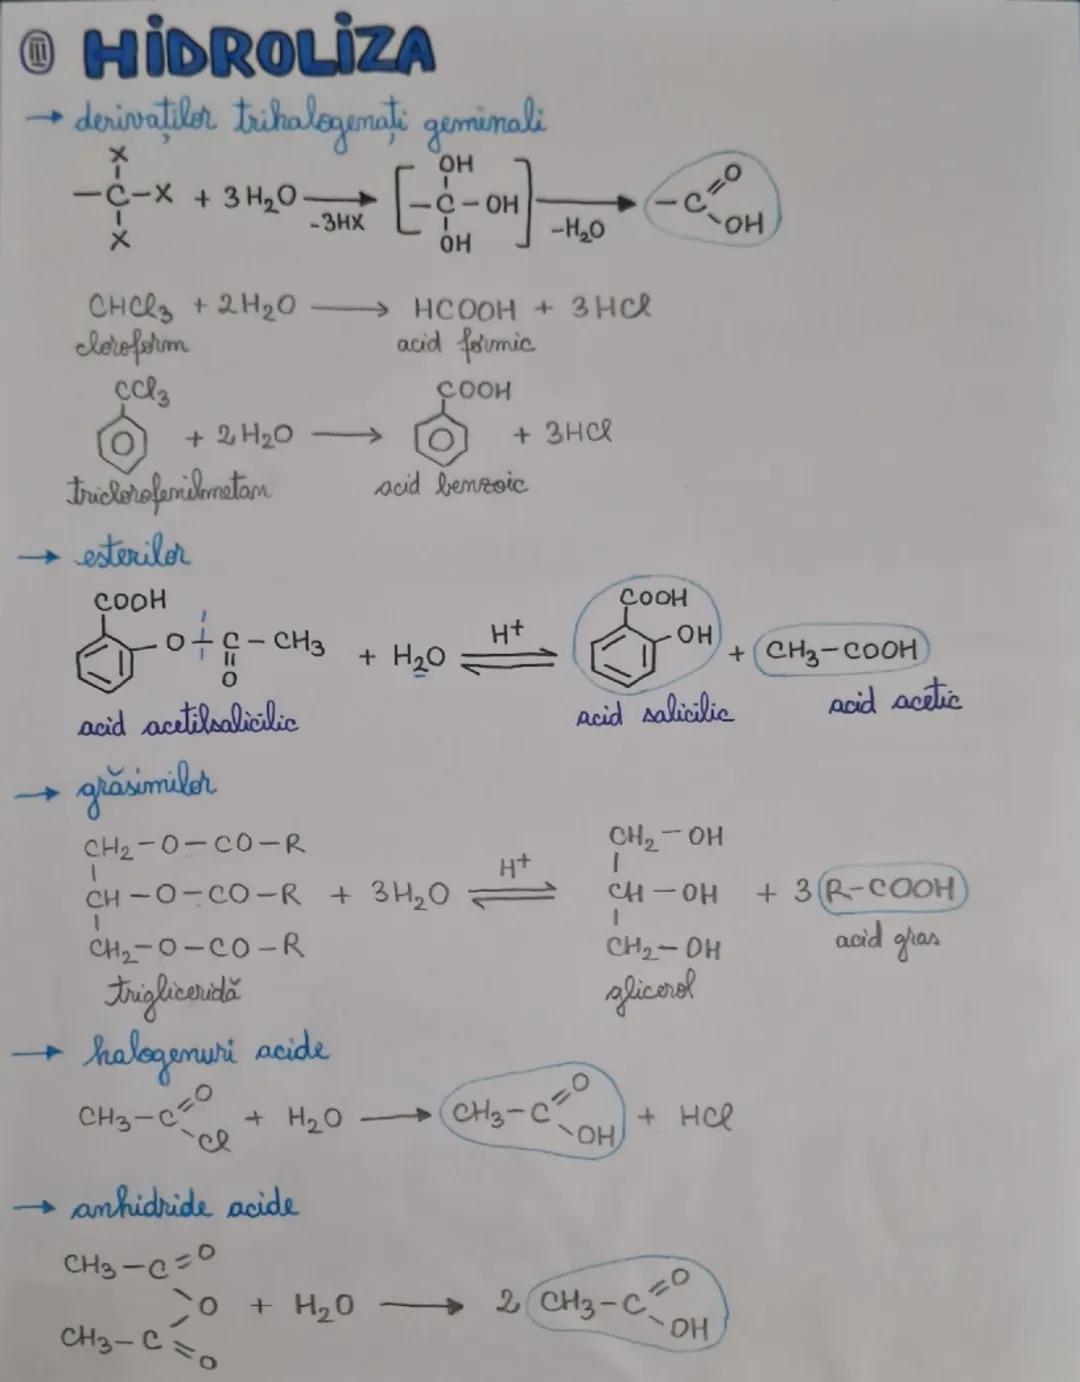 III HIDROLIZA
→ derivaților trihalogenați geminali
X
-C-X + 3H₂O → -3HX [-C-OH] → -H₂O -C=O
X OH OH OH
CHCl₃ + 2H₂O → HCOOH + 3HCl
cloroform acid formic
CCl₃ COOH
+ 2H₂O → + 3HCl
triclorofenilmetan acid benzoic
→ esterilor
COOH COOH
-O-C-CH₃ + H₂O ⇌ H⁺ -OH + CH₃-COOH
O
acid acetilsalicilic acid salicilic acid acetic
→ grăsimilor
CH₂-O-CO-R CH₂-OH
CH-O-CO-R + 3H₂O ⇌ H⁺ CH-OH + 3 R-COOH
CH₂-O-CO-R CH₂-OH acid gras
trigliceridă glicerol
→ halogenuri acide
CH₃-C=O + H₂O → CH₃-C=O + HCl
Cl OH
→ anhidride acide
CH₃-C=O
O + H₂O → 2 CH₃-C=O
CH₃-C=O OH